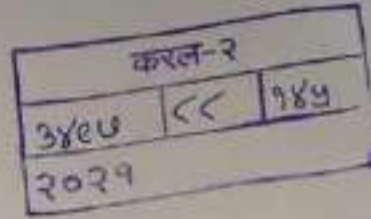 करल-२
३४९७ ८८ १४५
२०२१